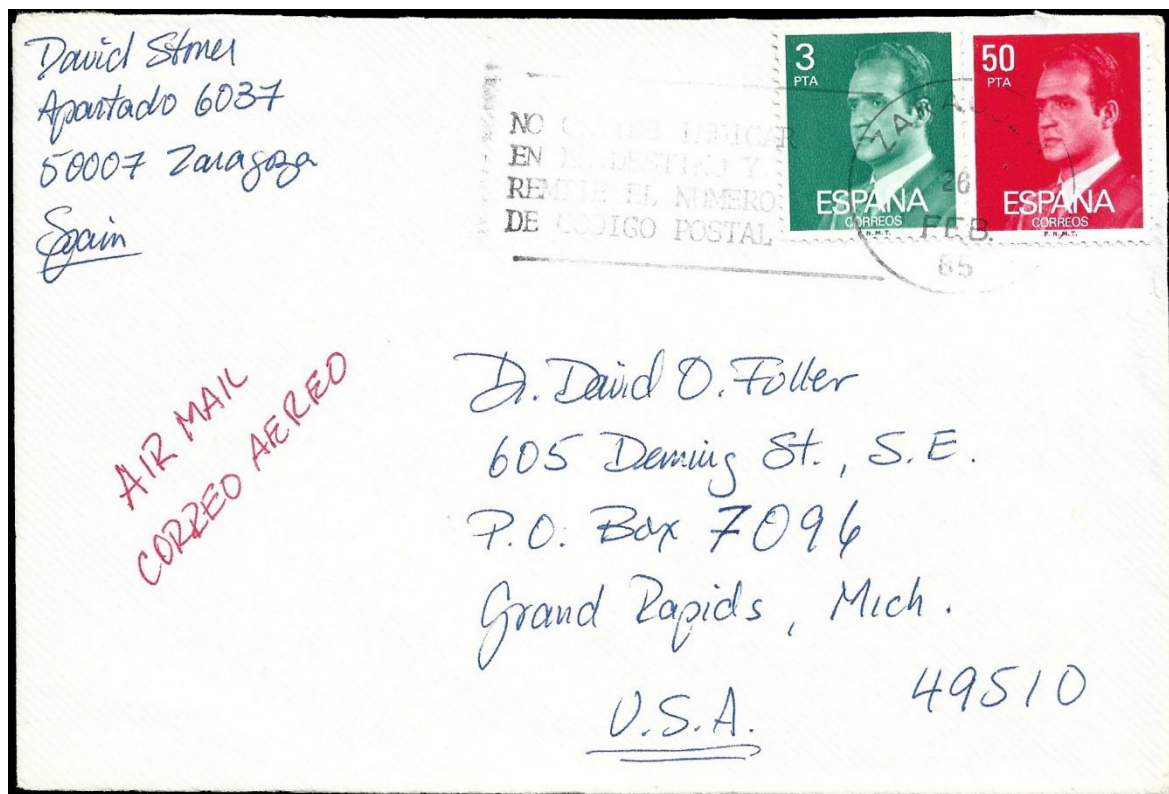 David Stoner
Apartado 6037
50007 Zaragoza
Spain
NO INDICAR
EN DESTINO Y
REMITE EL NUMERO
DE CODIGO POSTAL
3
PTA
ESPAÑA
CORREOS
F.N.M.T.
50
PTA
ESPAÑA
CORREOS
F.N.M.T.
26
FEB.
85
AIR MAIL
CORREO AEREO
Dr. David O. Fuller
605 Deming St., S.E.
P.O. Box 7096
Grand Rapids, Mich.
49510
U.S.A.